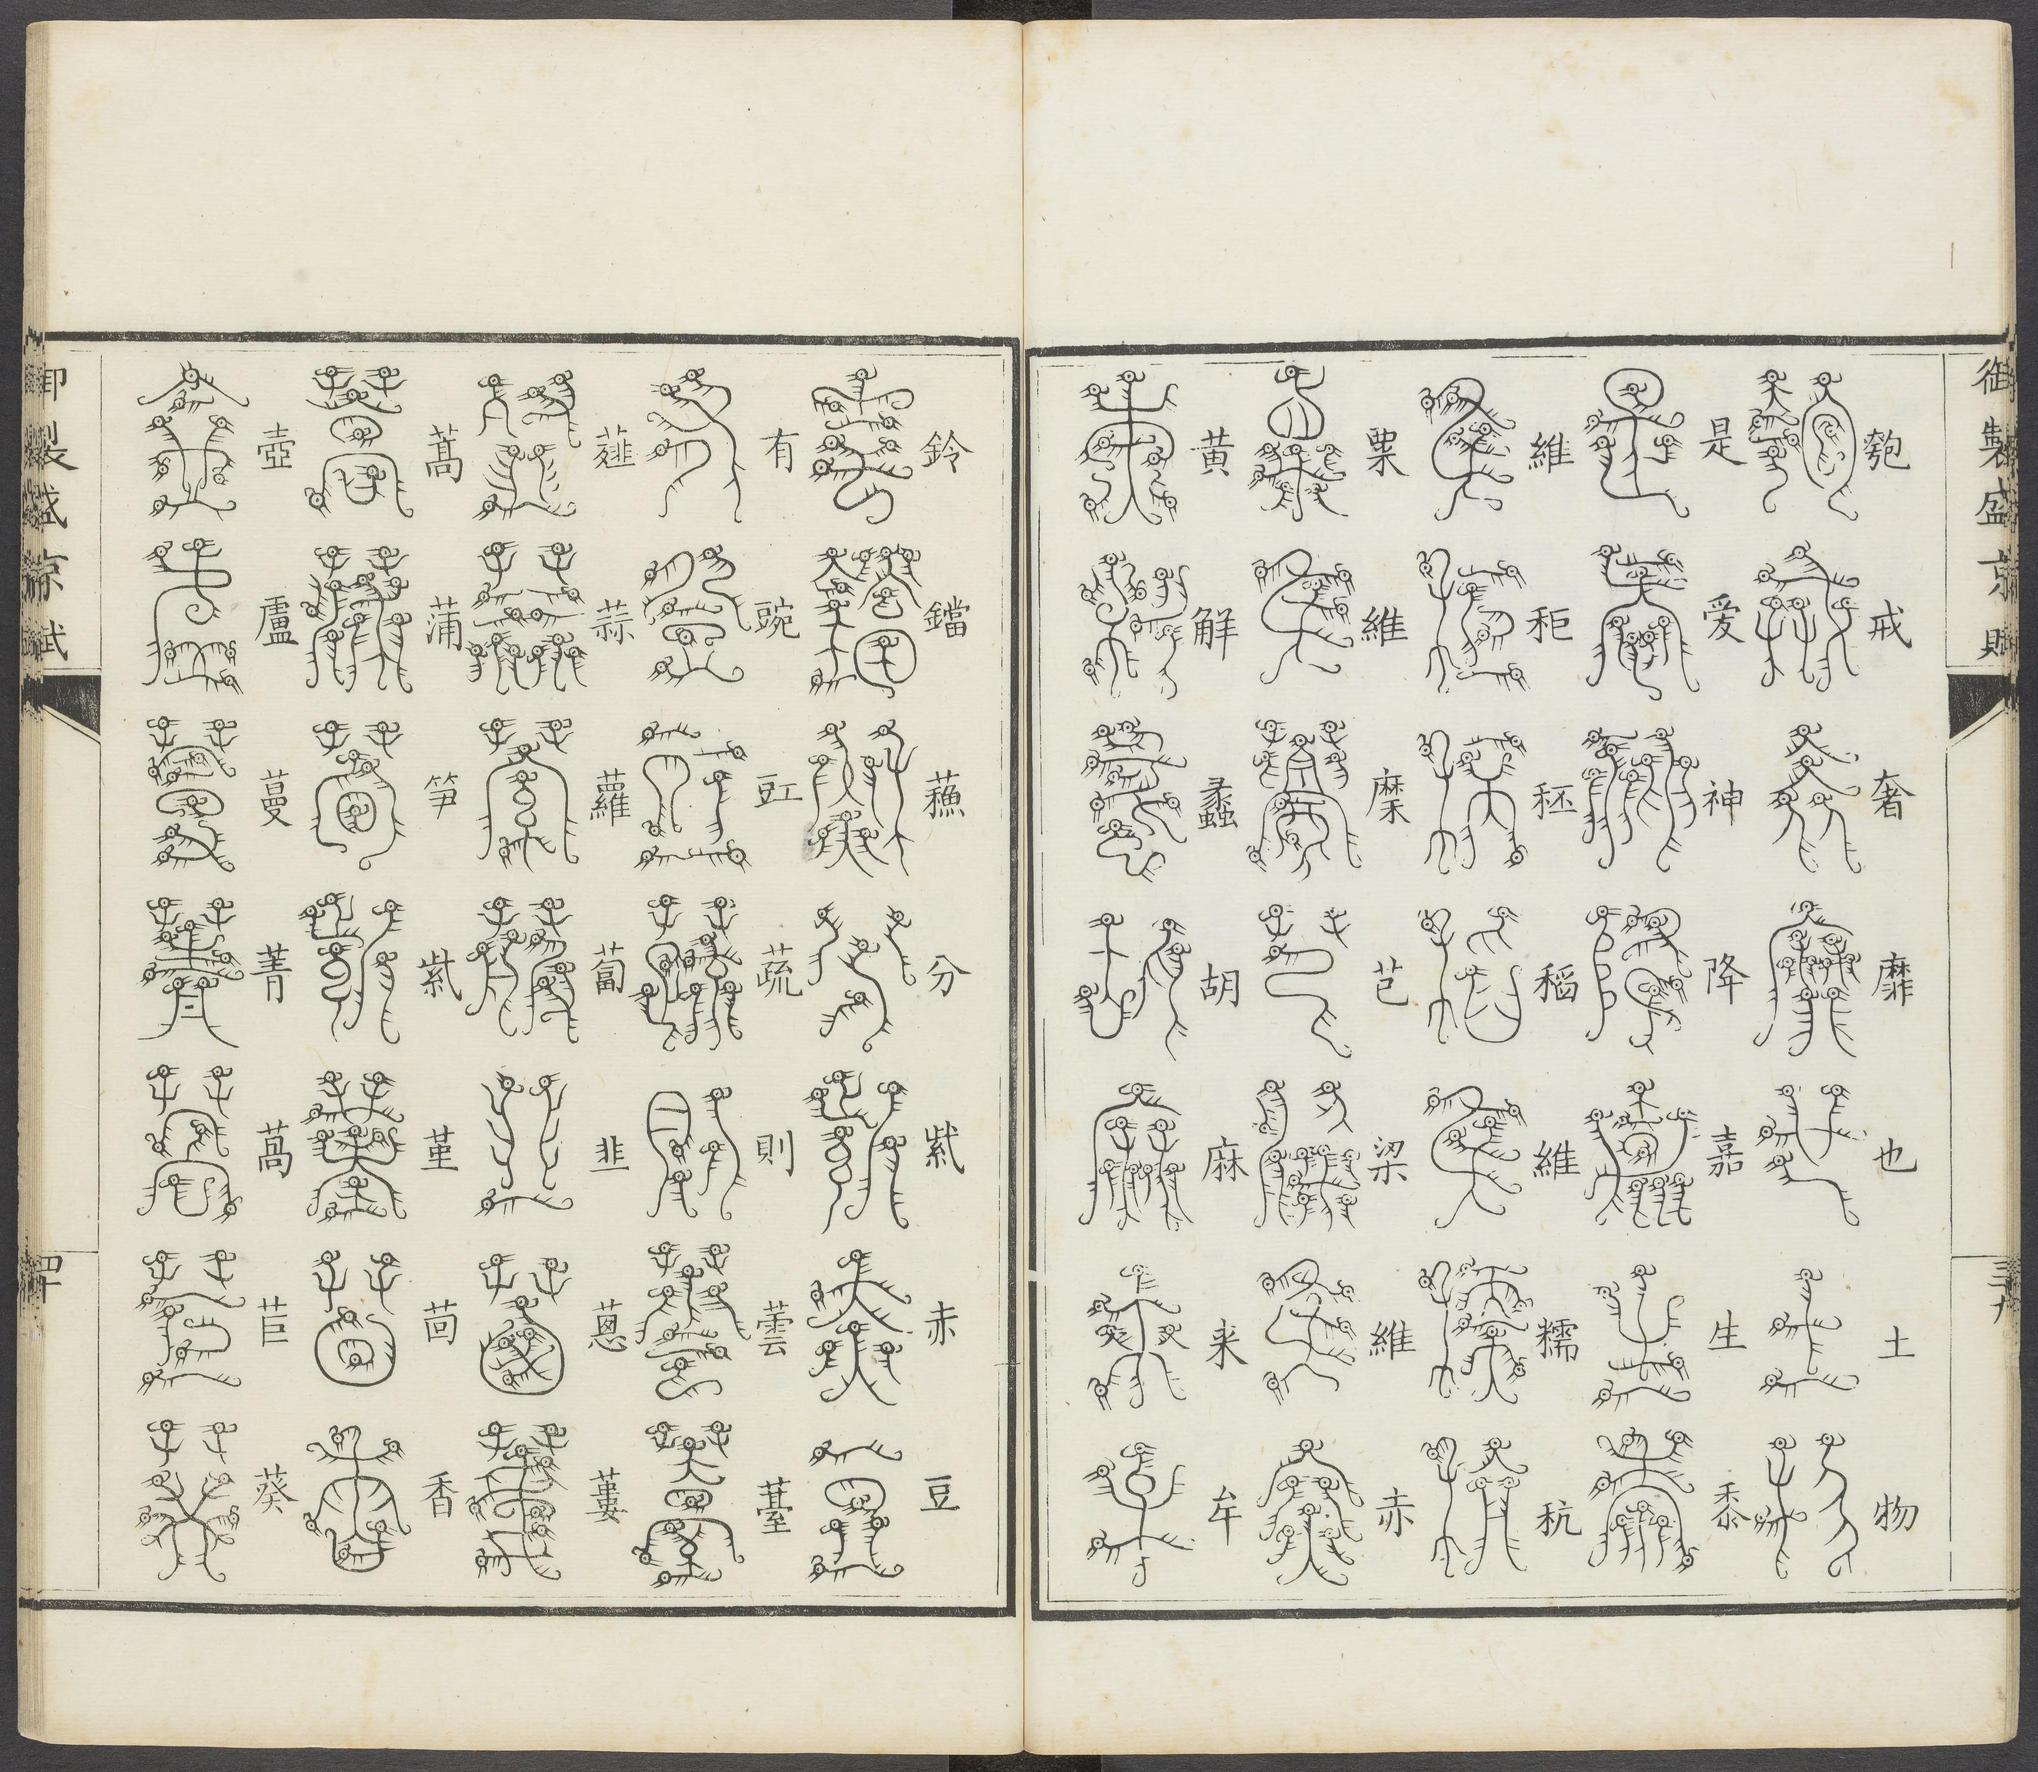 御製盛京賦
三九
匏戒奢靡也土物
是愛神降嘉生黍
維秬秠稻維糯秔
粟維穈芑粱維赤
黃解蠡胡麻來牟
鈴鐺蘓分紫赤豆
有豌豇蔬則蕓薹
薤蒜蘿蔔韭蔥蔞
蒿蒲笋紫堇茴香
壺盧蔓菁萵苣葵
御製盛京賦
四十